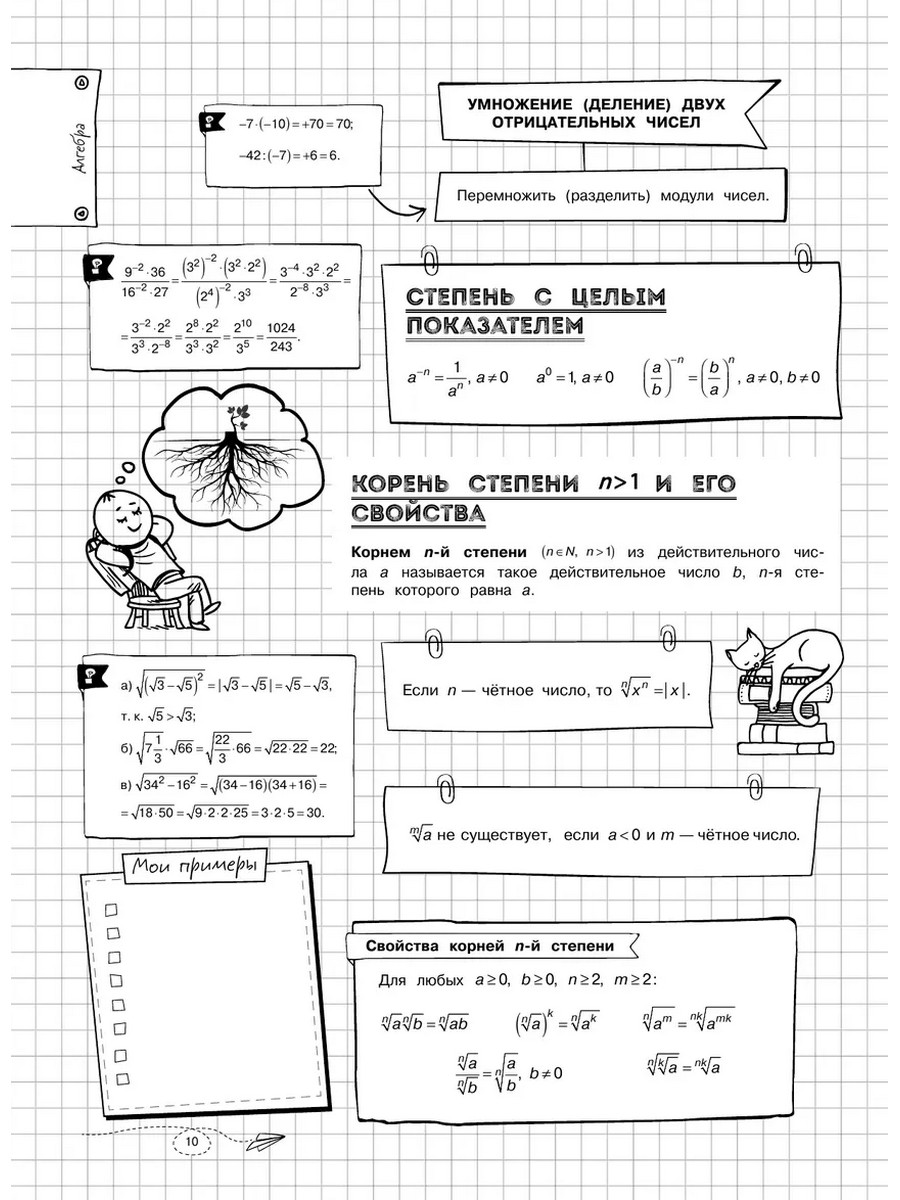 Алгебра
−7·(−10)=+70=70;
−42:(−7)=+6=6.
УМНОЖЕНИЕ (ДЕЛЕНИЕ) ДВУХ
ОТРИЦАТЕЛЬНЫХ ЧИСЕЛ
Перемножить (разделить) модули чисел.
(9⁻²·36)/(16⁻²·27)=((3²)⁻²·(3²·2²))/((2⁴)⁻²·3³)=(3⁻⁴·3²·2²)/(2⁻⁸·3³)=
=(3⁻²·2²)/(3³·2⁻⁸)=(2⁸·2²)/(3³·3²)=2¹⁰/3⁵=1024/243.
СТЕПЕНЬ С ЦЕЛЫМ
ПОКАЗАТЕЛЕМ
a⁻ⁿ=1/aⁿ, a≠0 a⁰=1, a≠0 (a/b)⁻ⁿ=(b/a)ⁿ, a≠0, b≠0
КОРЕНЬ СТЕПЕНИ n>1 И ЕГО
СВОЙСТВА
Корнем n-й степени (n∈N, n>1) из действительного чис-
ла a называется такое действительное число b, n-я сте-
пень которого равна a.
а) √((√3−√5)²)=|√3−√5|=√5−√3,
т. к. √5>√3;
б) √(7 1/3)·√66=√(22/3·66)=√(22·22)=22;
в) √(34²−16²)=√((34−16)(34+16))=
=√(18·50)=√(9·2·2·25)=3·2·5=30.
Если n — чётное число, то ⁿ√(xⁿ)=|x|.
ᵐ√a не существует, если a<0 и m — чётное число.
Мои примеры
Свойства корней n-й степени
Для любых a≥0, b≥0, n≥2, m≥2:
ⁿ√a ⁿ√b=ⁿ√(ab) (ⁿ√a)ᵏ=ⁿ√(aᵏ) ⁿ√(aᵐ)=ⁿᵏ√(aᵐᵏ)
ⁿ√a/ⁿ√b=ⁿ√(a/b), b≠0 ⁿ√(ᵏ√a)=ⁿᵏ√a
10